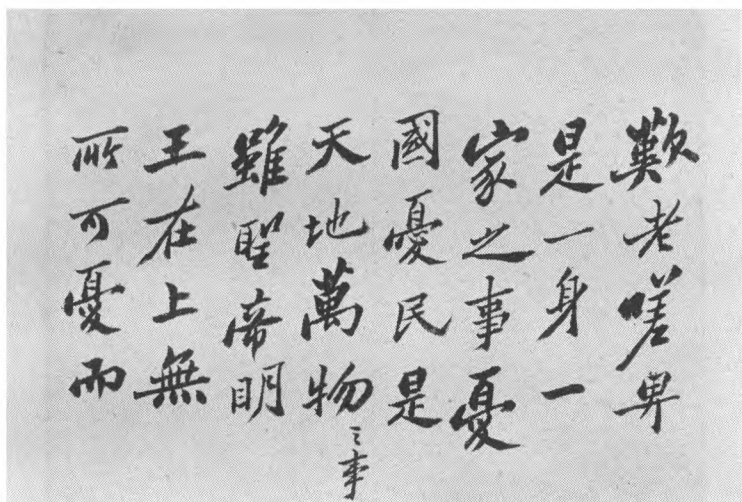 歎老嗟卑
是一身一
家之事憂
國憂民是
天地萬物之事
雖聖帝明
王在上無
所可憂而